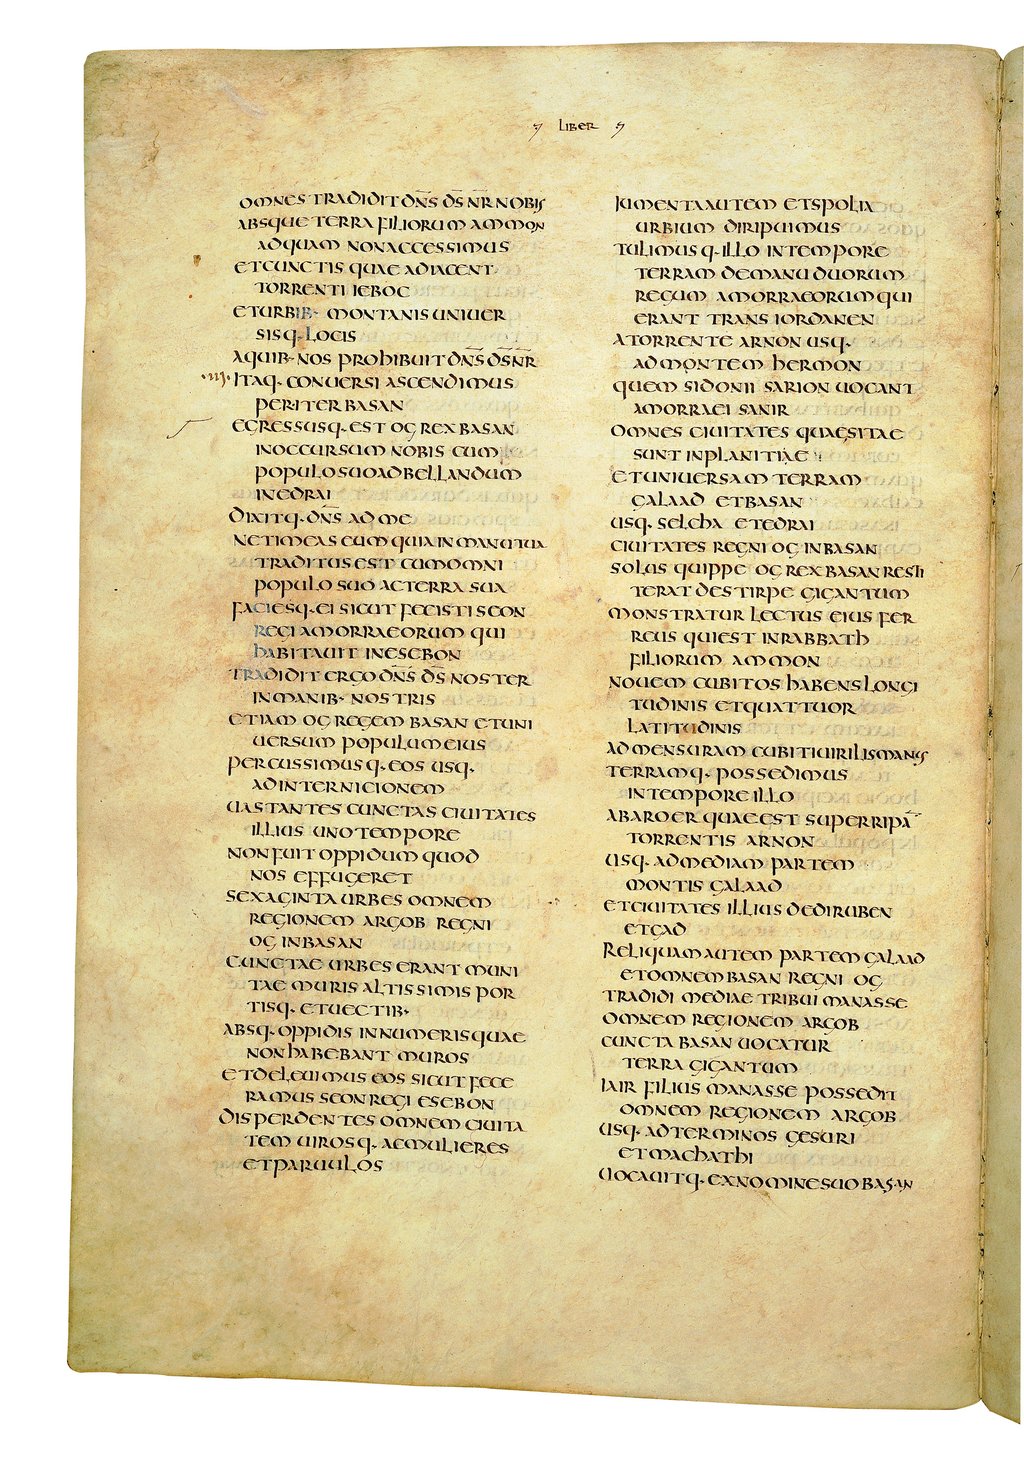 LIBER
OMNES TRADIDIT DNS DS NR NOBIS
ABSQUE TERRA FILIORUM AMMON
AD QUAM NON ACCESSIMUS
ET CUNCTIS QUAE ADIACENT
TORRENTI IEBOC
ET URBIB· MONTANIS UNIUER
SISQ· LOCIS
A QUIB· NOS PROHIBUIT DNS DS NR
·III· ITAQ· CONUERSI ASCENDIMUS
PER ITER BASAN
EGRESSUSQ· EST OG REX BASAN
IN OCCURSUM NOBIS CUM
POPULO SUO AD BELLANDUM
IN EDRAI
DIXITQ· DNS AD ME
NE TIMEAS EUM QUIA IN MANU TUA
TRADITUS EST CUM OMNI
POPULO SUO AC TERRA SUA
FACIESQ· EI SICUT FECISTI SEON
REGI AMORRAEORUM QUI
HABITAUIT IN ESEBON
TRADIDIT ERGO DNS DS NOSTER
IN MANIB· NOSTRIS
ETIAM OG REGEM BASAN ET UNI
UERSUM POPULUM EIUS
PERCUSSIMUSQ· EOS USQ·
AD INTERNICIONEM
UASTANTES CUNCTAS CIUITATES
ILLIUS UNO TEMPORE
NON FUIT OPPIDUM QUOD
NOS EFFUGERET
SEXAGINTA URBES OMNEM
REGIONEM ARGOB REGNI
OG IN BASAN
CUNCTAE URBES ERANT MUNI
TAE MURIS ALTISSIMIS POR
TISQ· ET UECTIB·
ABSQ· OPPIDIS INNUMERIS QUAE
NON HABEBANT MUROS
ET DELEUIMUS EOS SICUT FECE
RAMUS SEON REGI ESEBON
DISPERDENTES OMNEM CIUITA
TEM UIROSQ· AC MULIERES
ET PARUULOS
IUMENTA AUTEM ET SPOLIA
URBIUM DIRIPUIMUS
TULIMUSQ· ILLO IN TEMPORE
TERRAM DE MANU DUORUM
REGUM AMORRAEORUM QUI
ERANT TRANS IORDANEN
A TORRENTE ARNON USQ·
AD MONTEM HERMON
QUEM SIDONII SARION UOCANT
AMORRAEI SANIR
OMNES CIUITATES QUAE SITAE
SUNT IN PLANITIAE
ET UNIUERSAM TERRAM
GALAAD ET BASAN
USQ· SELCHA ET EDRAI
CIUITATES REGNI OG IN BASAN
SOLUS QUIPPE OG REX BASAN RESTI
TERAT DE STIRPE GIGANTUM
MONSTRATUR LECTUS EIUS FER
REUS QUI EST IN RABBATH
FILIORUM AMMON
NOUEM CUBITOS HABENS LONGI
TUDINIS ET QUATTUOR
LATITUDINIS
AD MENSURAM CUBITI UIRILIS MANUS
TERRAMQ· POSSEDIMUS
IN TEMPORE ILLO
AB AROER QUAE EST SUPER RIPA
TORRENTIS ARNON
USQ· AD MEDIAM PARTEM
MONTIS GALAAD
ET CIUITATES ILLIUS DEDI RUBEN
ET GAD
RELIQUAM AUTEM PARTEM GALAAD
ET OMNEM BASAN REGNI OG
TRADIDI MEDIAE TRIBUI MANASSE
OMNEM REGIONEM ARGOB
CUNCTA BASAN UOCATUR
TERRA GIGANTUM
IAIR FILIUS MANASSE POSSEDIT
OMNEM REGIONEM ARGOB
USQ· AD TERMINOS GESURI
ET MACHATHI
UOCAUITQ· EX NOMINE SUO BASAN